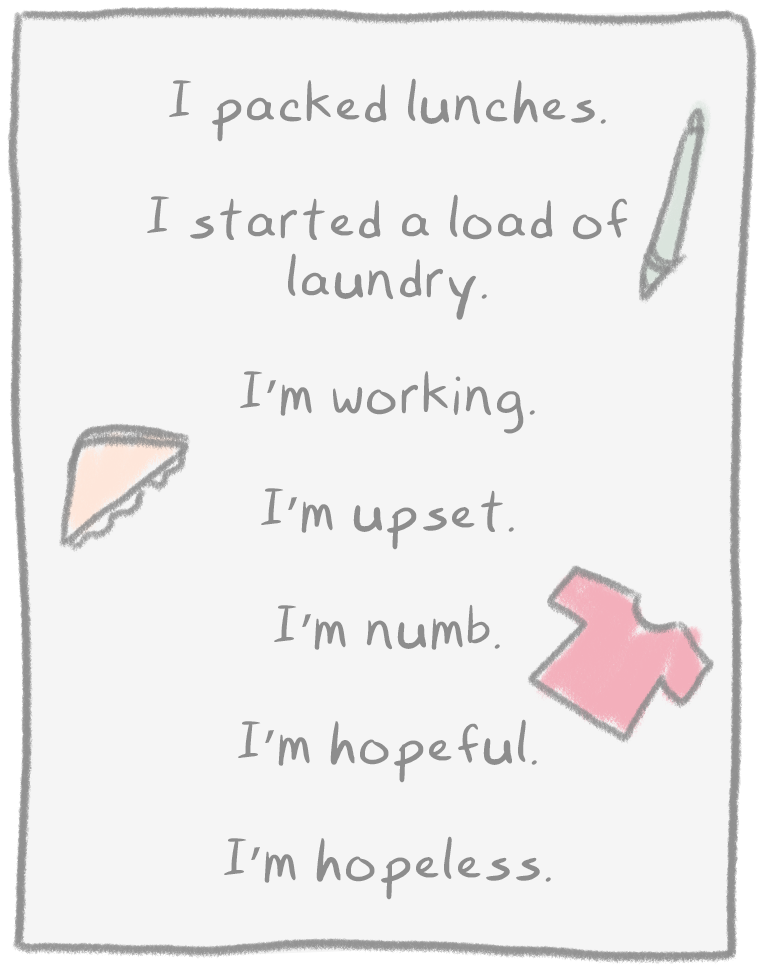 I packed lunches.
I started a load of
laundry.
I'm working.
I'm upset.
I'm numb.
I'm hopeful.
I'm hopeless.